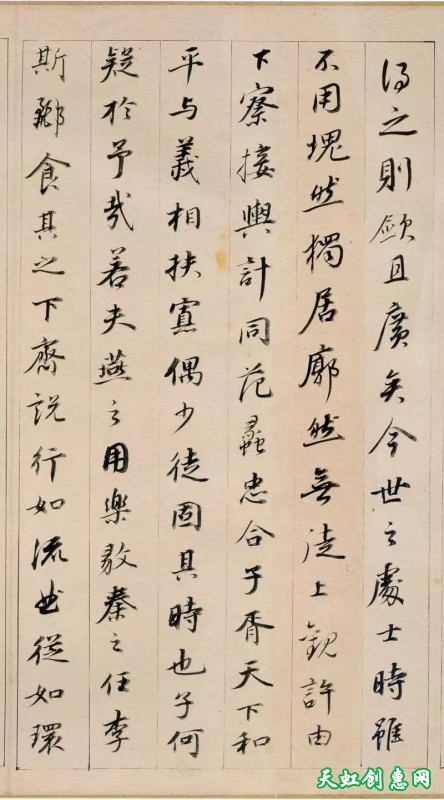 得之則敏且廣矣今世之處士時雖
不用塊然獨居廓然無徒上觀許由
下察接輿計同范蠡忠合子胥天下和
平与義相扶寡偶少徒固其時也子何
疑於予哉若夫燕之用樂毅秦之任李
斯酈食其之下齊說行如流曲從如環
天虹创惠网